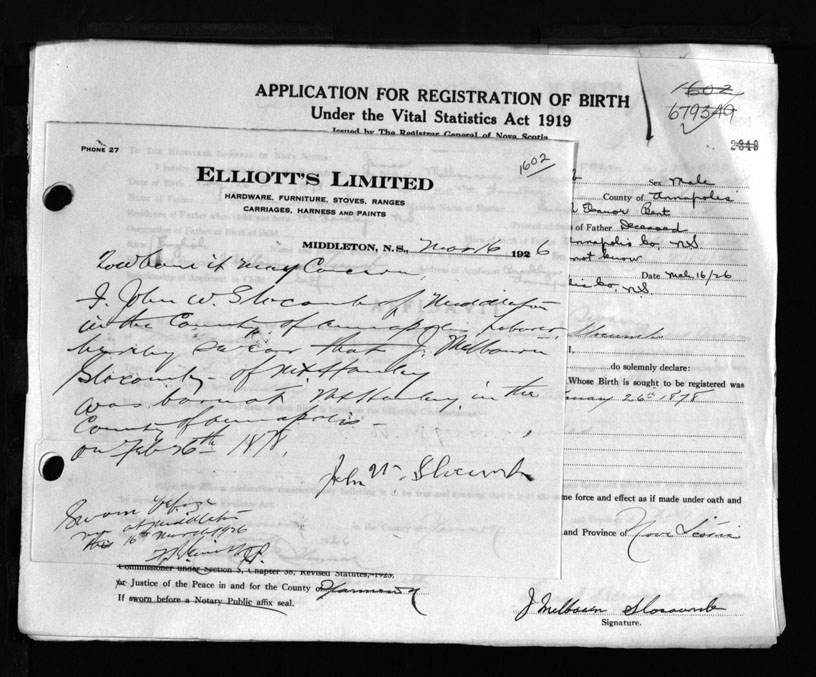 APPLICATION FOR REGISTRATION OF BIRTH
Under the Vital Statistics Act 1919
Issued by The Registrar General of Nova Scotia
1602
679349
2849
PHONE 27
1602
ELLIOTT'S LIMITED
HARDWARE, FURNITURE, STOVES, RANGES
CARRIAGES, HARNESS AND PAINTS
MIDDLETON, N.S., Mar 16 1926
To whom it may Concern,
I, John W. Slocomb of Middleton
in the County of Annapolis, laborer,
hereby swear that J. Melbourn
Slocomb of Mt Hanley
was born at Mt Hanley in the
County of Annapolis
on Feb 26th 1878.
John W. Slocomb
Sworn before
me at Middleton
this 16th March 1926
J.P.
Sex Male
County of Annapolis
Eleanor Bent
of Father Deceased
Annapolis Co, N.S.
not know
Date Mch, 16/26
N.S.
Slocomb
I,
do solemnly declare:
Whose Birth is sought to be registered was
26th 1878
me force and effect as if made under oath and
and Province of Nova Scotia
Commissioner under Section 5, Chapter 38, Revised Statutes, 1923.
or Justice of the Peace in and for the County of Yarmouth
If sworn before a Notary Public affix seal.
J Melbourn Slocomb
Signature.